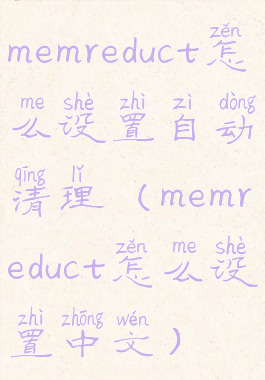 zěn
memreduct怎
me shè zhì zì dòng
么设置自动
qīng lǐ
清理（memr
zěn me shè
educt怎么设
zhì zhōng wén
置中文）